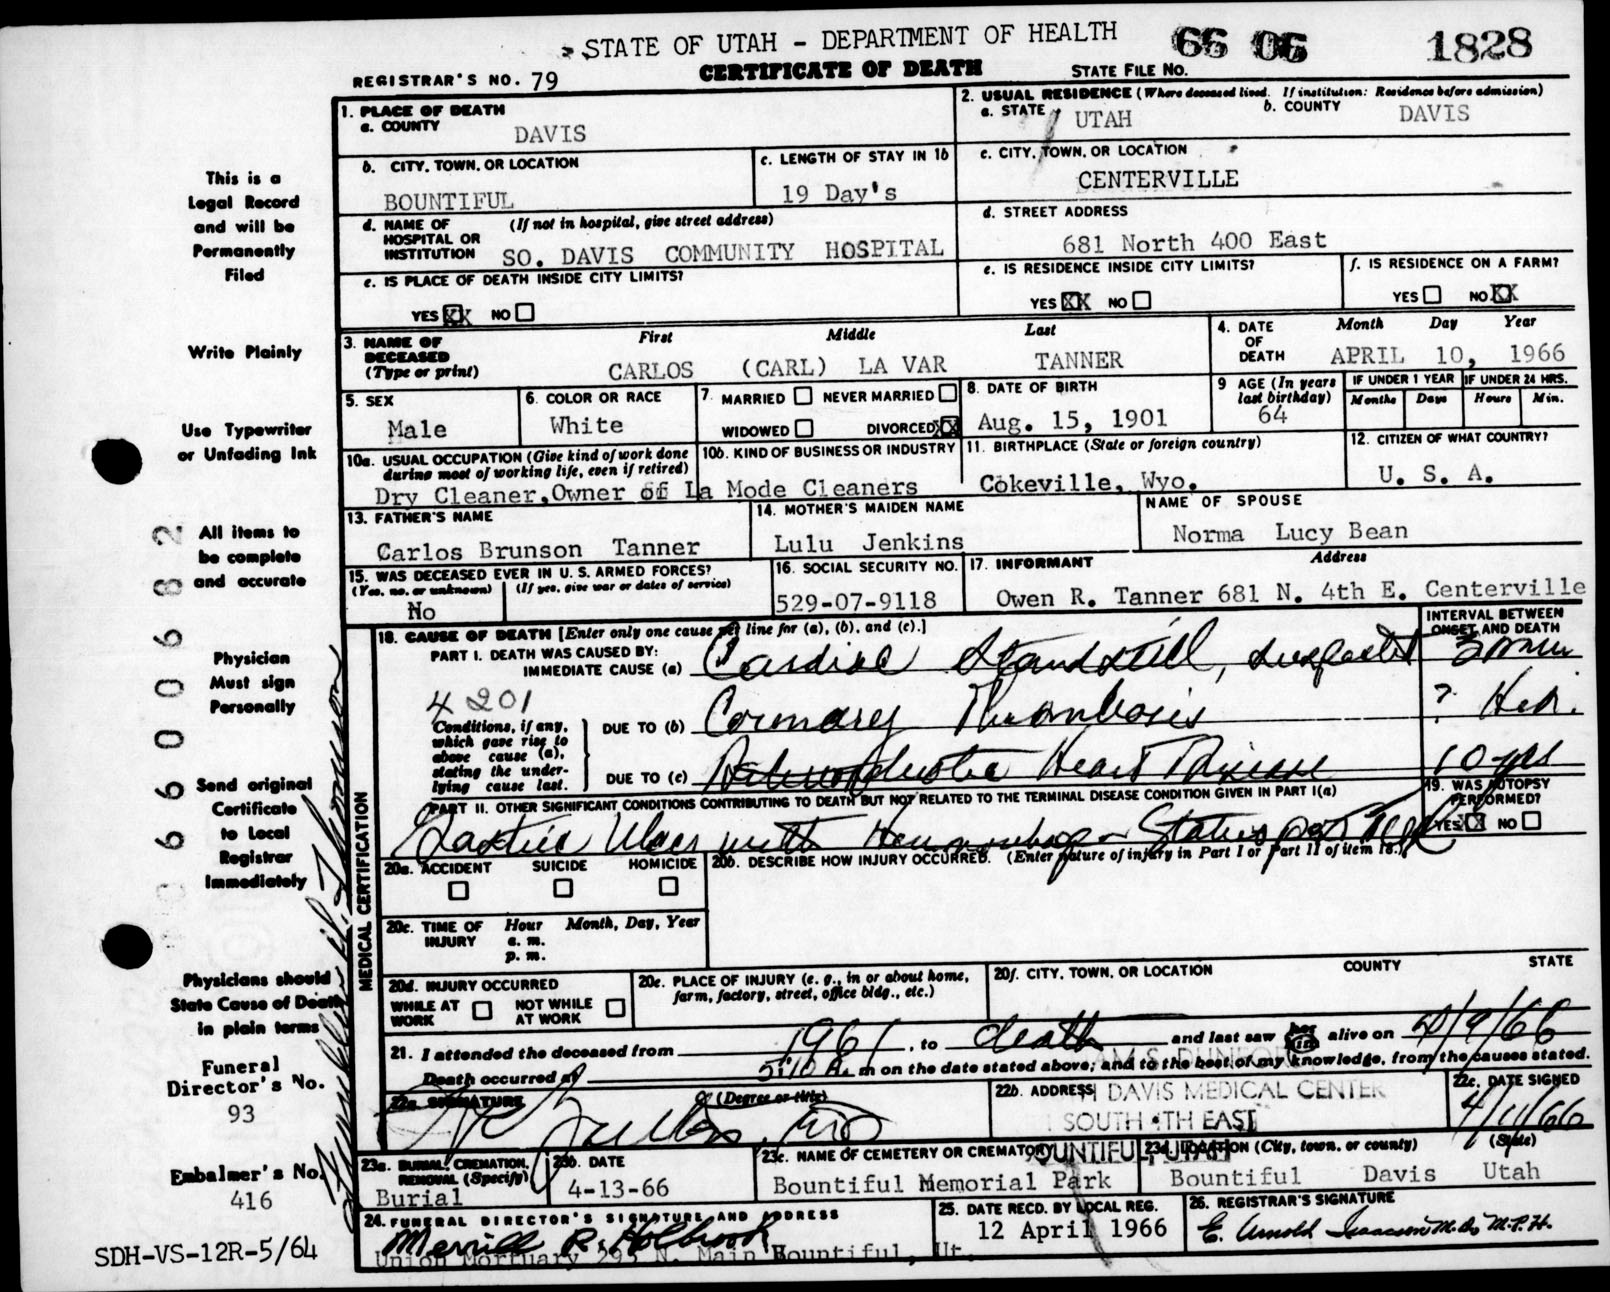 STATE OF UTAH - DEPARTMENT OF HEALTH 66 06 1828
REGISTRAR'S NO. 79 CERTIFICATE OF DEATH STATE FILE NO.
1. PLACE OF DEATH
a. COUNTY
DAVIS
2. USUAL RESIDENCE (Where deceased lived. If institution: Residence before admission)
a. STATE UTAH b. COUNTY DAVIS
b. CITY, TOWN, OR LOCATION
BOUNTIFUL
c. LENGTH OF STAY IN 1b
19 Day's
c. CITY, TOWN, OR LOCATION
CENTERVILLE
d. NAME OF HOSPITAL OR INSTITUTION (If not in hospital, give street address)
SO. DAVIS COMMUNITY HOSPITAL
d. STREET ADDRESS
681 North 400 East
e. IS PLACE OF DEATH INSIDE CITY LIMITS?
YES XX NO
e. IS RESIDENCE INSIDE CITY LIMITS?
YES XX NO
f. IS RESIDENCE ON A FARM?
YES NO XX
3. NAME OF DECEASED (Type or print)
First Middle Last
CARLOS (CARL) LA VAR TANNER
4. DATE OF DEATH
Month Day Year
APRIL 10, 1966
5. SEX
Male
6. COLOR OR RACE
White
7. MARRIED NEVER MARRIED
WIDOWED DIVORCED XX
8. DATE OF BIRTH
Aug. 15, 1901
9 AGE (In years last birthday)
64
IF UNDER 1 YEAR
Months Days
IF UNDER 24 HRS.
Hours Min.
10a. USUAL OCCUPATION (Give kind of work done during most of working life, even if retired)
10b. KIND OF BUSINESS OR INDUSTRY
Dry Cleaner, Owner of La Mode Cleaners
11. BIRTHPLACE (State or foreign country)
Cokeville, Wyo.
12. CITIZEN OF WHAT COUNTRY?
U. S. A.
13. FATHER'S NAME
Carlos Brunson Tanner
14. MOTHER'S MAIDEN NAME
Lulu Jenkins
NAME OF SPOUSE
Norma Lucy Bean
15. WAS DECEASED EVER IN U. S. ARMED FORCES?
(Yes, no, or unknown) (If yes, give war or dates of service)
No
16. SOCIAL SECURITY NO.
529-07-9118
17. INFORMANT Address
Owen R. Tanner 681 N. 4th E. Centerville
MEDICAL CERTIFICATION
18. CAUSE OF DEATH [Enter only one cause per line for (a), (b), and (c).]
INTERVAL BETWEEN ONSET AND DEATH
PART I. DEATH WAS CAUSED BY:
IMMEDIATE CAUSE (a) Cardiac Standstill, suspected min
4201
Conditions, if any, which gave rise to above cause (a), stating the underlying cause last.
DUE TO (b) Coronary Thrombosis ? Hrs.
DUE TO (c) Heart Disease 10 yrs
PART II. OTHER SIGNIFICANT CONDITIONS CONTRIBUTING TO DEATH BUT NOT RELATED TO THE TERMINAL DISEASE CONDITION GIVEN IN PART I(a)
Gastric Ulcer with Hemorrhage - Status post
19. WAS AUTOPSY PERFORMED?
YES X NO
20a. ACCIDENT SUICIDE HOMICIDE
20b. DESCRIBE HOW INJURY OCCURRED. (Enter nature of injury in Part I or Part II of item 18.)
20c. TIME OF INJURY Hour Month, Day, Year
a. m.
p. m.
20d. INJURY OCCURRED
WHILE AT WORK NOT WHILE AT WORK
20e. PLACE OF INJURY (e. g., in or about home, farm, factory, street, office bldg., etc.)
20f. CITY, TOWN, OR LOCATION COUNTY STATE
21. I attended the deceased from 1961, to death and last saw her him alive on 4/9/66
Death occurred at 5:10 A. m on the date stated above; and to the best of my knowledge, from the causes stated.
22a. SIGNATURE (Degree or title)
22b. ADDRESS DAVIS MEDICAL CENTER
SOUTH 4TH EAST
BOUNTIFUL, UTAH
22c. DATE SIGNED
4/11/66
23a. BURIAL, CREMATION, REMOVAL (Specify)
Burial
23b. DATE
4-13-66
23c. NAME OF CEMETERY OR CREMATORY
Bountiful Memorial Park
23d. LOCATION (City, town, or county) (State)
Bountiful Davis Utah
24. FUNERAL DIRECTOR'S SIGNATURE AND ADDRESS
Merrill R. Holbrook
Union Mortuary 295 N. Main Bountiful, Ut.
25. DATE RECD. BY LOCAL REG.
12 April 1966
26. REGISTRAR'S SIGNATURE
E. Arnold Isaacson M.D., M.P.H.
This is a
Legal Record
and will be
Permanently
Filed
Write Plainly
Use Typewriter
or Unfading Ink
All items to
be complete
and accurate
Physician
Must sign
Personally
Send original
Certificate
to Local
Registrar
Immediately
Physicians should
State Cause of Death
in plain terms
Funeral
Director's No.
93
Embalmer's No.
416
SDH-VS-12R-5/64